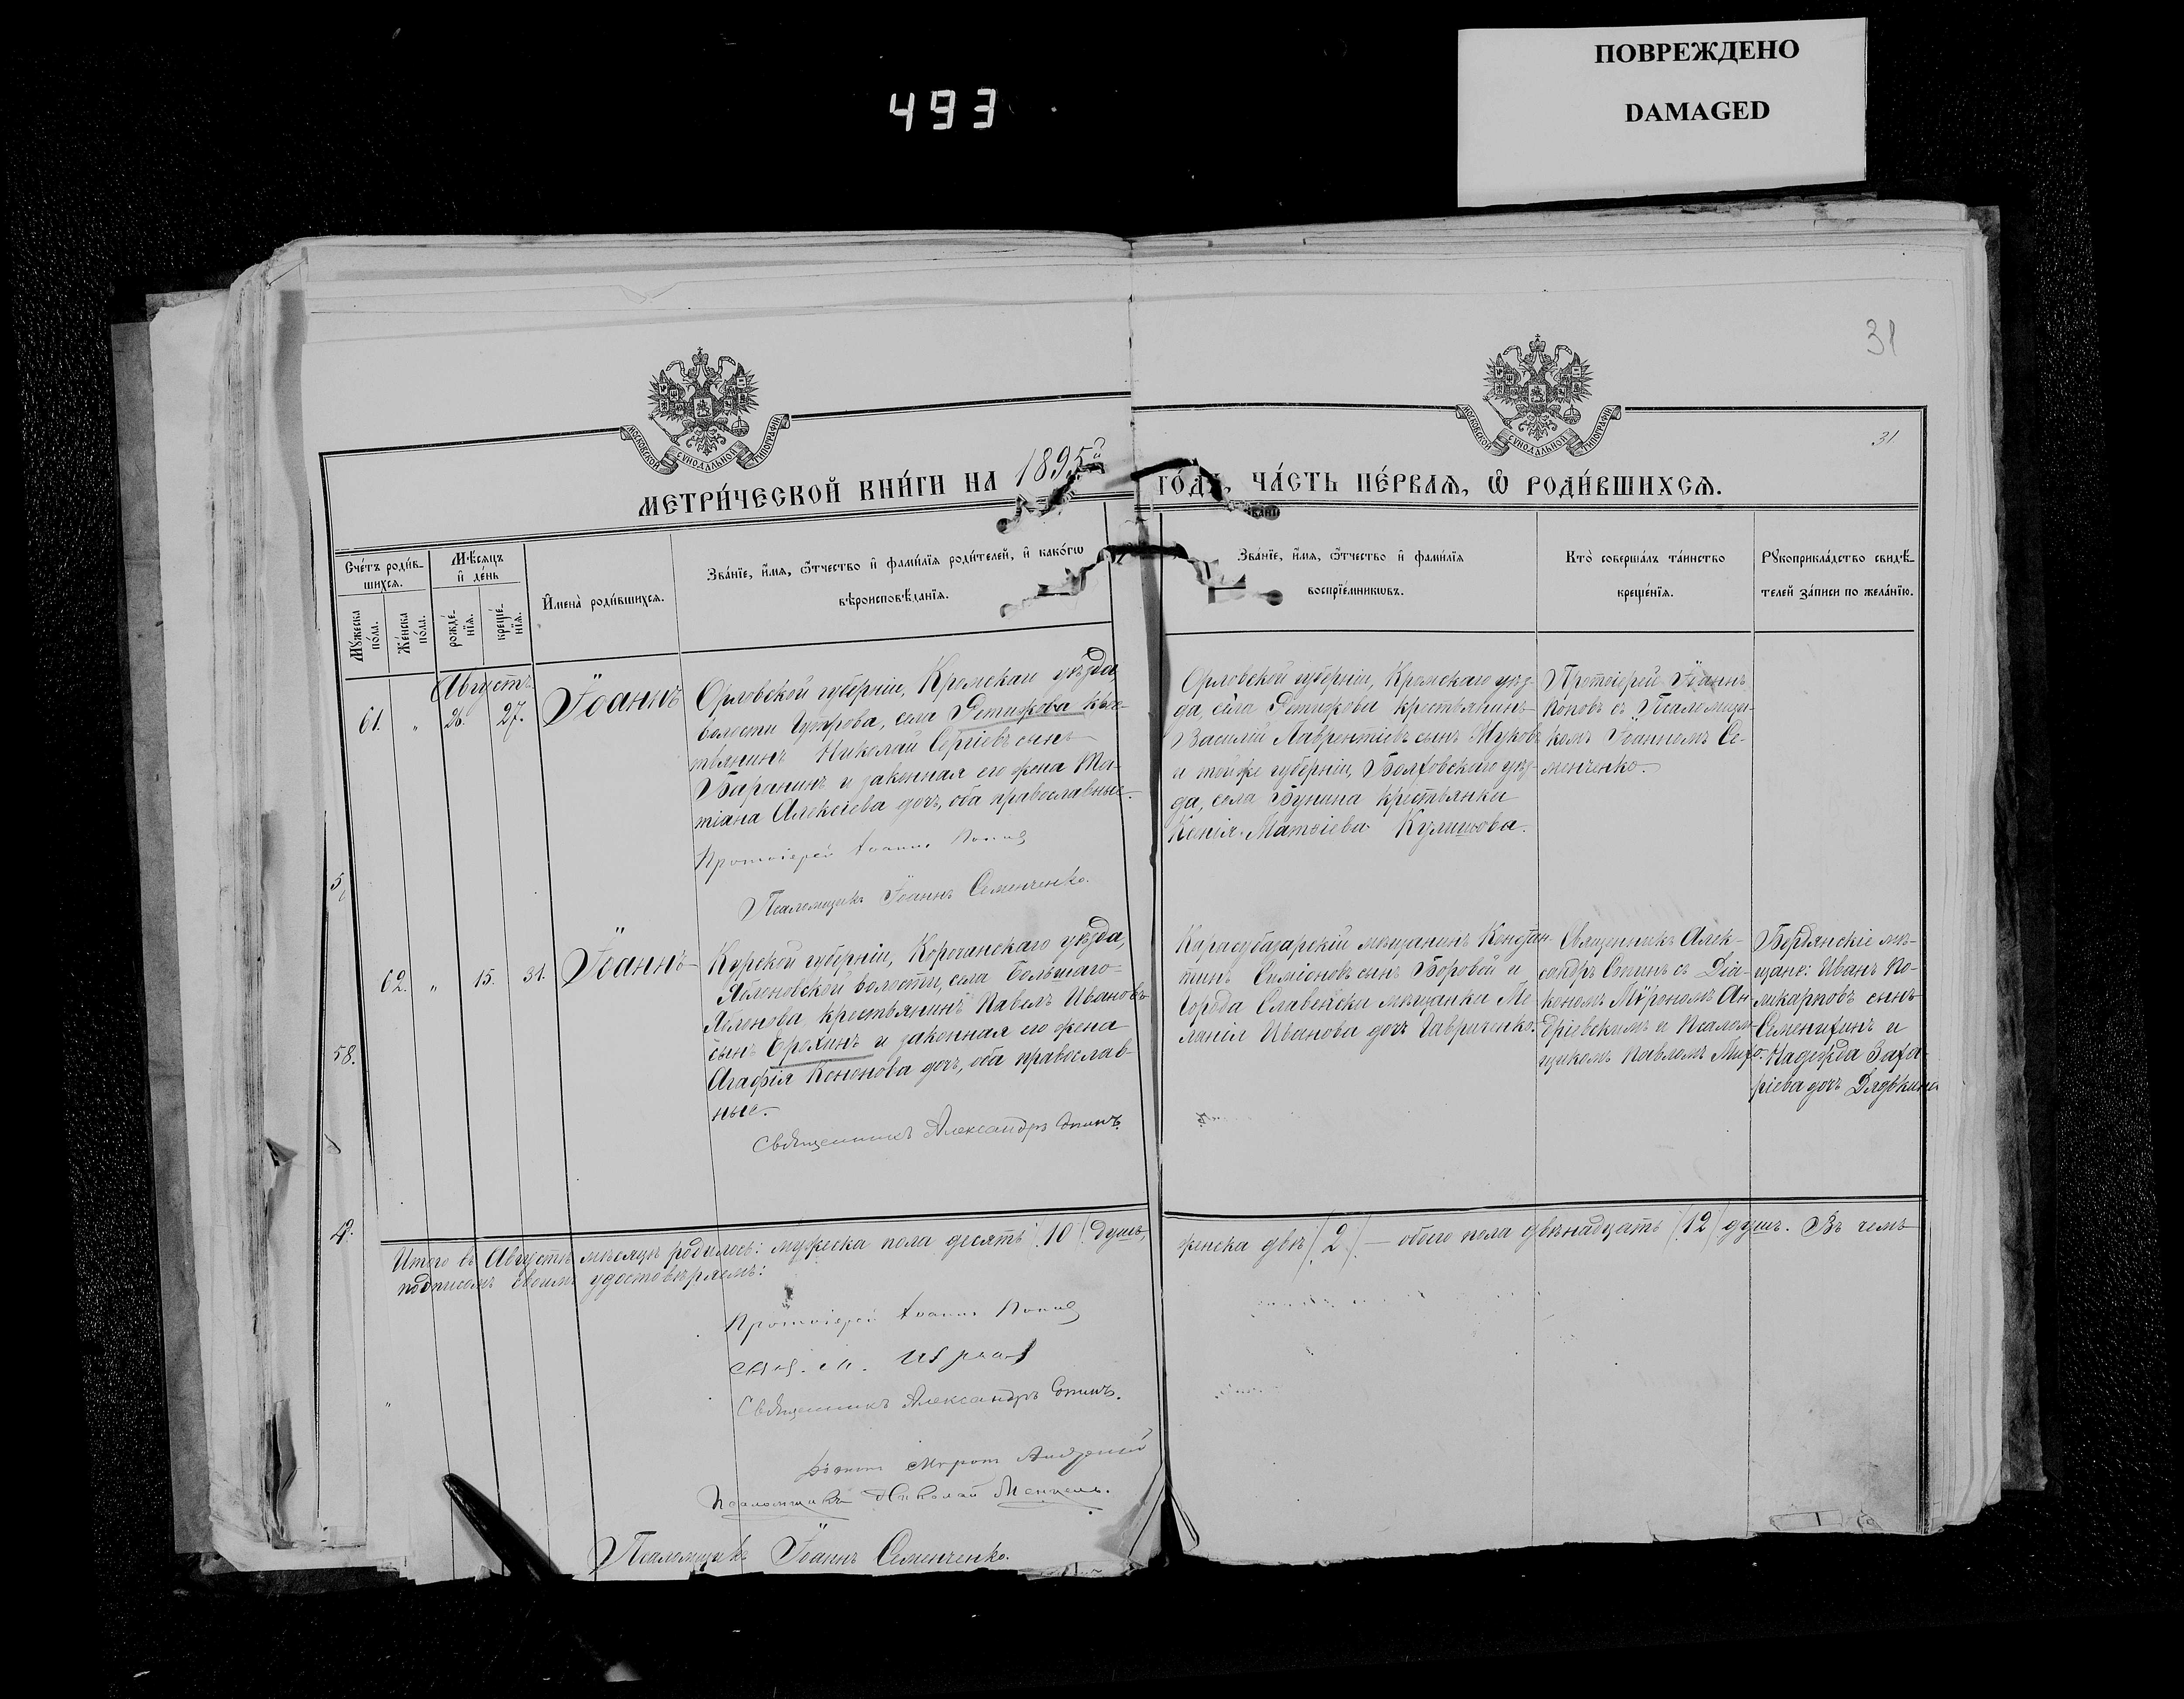 ПОВРЕЖДЕНО
DAMAGED
493
31
31
МОСКОВСКОЙ СУНОДАЛЬНОЙ ТИПОГРАФІИ
МОСКОВСКОЙ СУНОДАЛЬНОЙ ТИПОГРАФІИ
МЕТРИ́ЧЕСКОЙ КНИ́ГИ НА 1895й ГО́ДЪ, ЧА́СТЬ ПЕ́РВАѦ, Ѡ РОДИ́ВШИХСѦ.
Сче́тъ роди́в-
шихсѧ.
Мꙋ́жеска
по́ла.
Же́нска
по́ла.
Мѣ́сѧцъ
и҆ де́нь
рожде́-
нїѧ.
креще́-
нїѧ.
И҆мена̀ роди́вшихсѧ.
Зва́нїе, и҆́мѧ, ѻ҆́тчество и҆ фами́лїѧ роди́телей, и҆ како́гѡ
вѣроисповѣ́данїѧ.
Зва́нїе, и҆́мѧ, ѻ҆́тчество и҆ фами́лїѧ
воспрїе́мникѡвъ.
Кто̀ соверша́лъ та́инство
креще́нїѧ.
Рꙋкоприкла́дство свидѣ́-
телей за́писи по жела́нїю.
Августъ
61. " 26. 27. Іоаннъ
Орловской губерніи, Кромскаго уѣзда,
волости, села Ретяжова кре-
тьянинъ Николай Сергіевъ сынъ
Баранинъ и законная его жена Та-
тіана Алексіева дочь, оба православные.
Протоіерей Іоаннъ
Псаломщикъ Іоаннъ Семенченко.
Орловской губерніи, Кромскаго уѣз-
да, села Ретяжова крестьянинъ
Василій Лаврентіевъ сынъ Жуковъ
и тойже губерніи, Болховскаго уѣз-
да, села Бунина крестьянка
Ксенія Матѳіева Кулешова.
Протоіерей Іоаннъ
съ Псаломщи-
комъ Іоанномъ Се-
менченко.
5
62. " 15. 31. Іоаннъ
Курской губерніи, Корочанскаго уѣзда,
Яблоновской волости, села Большаго-
Яблонова, крестьянинъ Павелъ Ивановъ
сынъ Ерохинъ и законная его жена
Агафія Кононова дочь, оба православ-
ные.
Священникъ Александръ
Карасубазарскій мѣщанинъ Констан-
тинъ Симіоновъ сынъ Боровой и
города Славенска мѣщанка Ме-
ланія Иванова дочь Гавриченко.
Священникъ Алек-
сандръ съ Діа-
кономъ Мѵрономъ Ан-
дріевскимъ и Псалом-
щикомъ Павломъ
Бердянскіе мѣ-
щане: Иванъ По-
ликарповъ сынъ
Семенихинъ и
Надежда Заха-
ріева дочь Дядькина
58.
4.
Итого въ Августѣ мѣсяцѣ родилось: мужеска пола десять /10/ душъ, женска двѣ /2/ — обоего пола двѣнадцать /12/ душъ. Въ чемъ
подписомъ своимъ удостовѣряемъ:
Протоіерей Іоаннъ
Священникъ Александръ
Діаконъ Мѵронъ Андріевскій
Псаломщикъ Николай
Псаломщикъ Іоаннъ Семенченко.